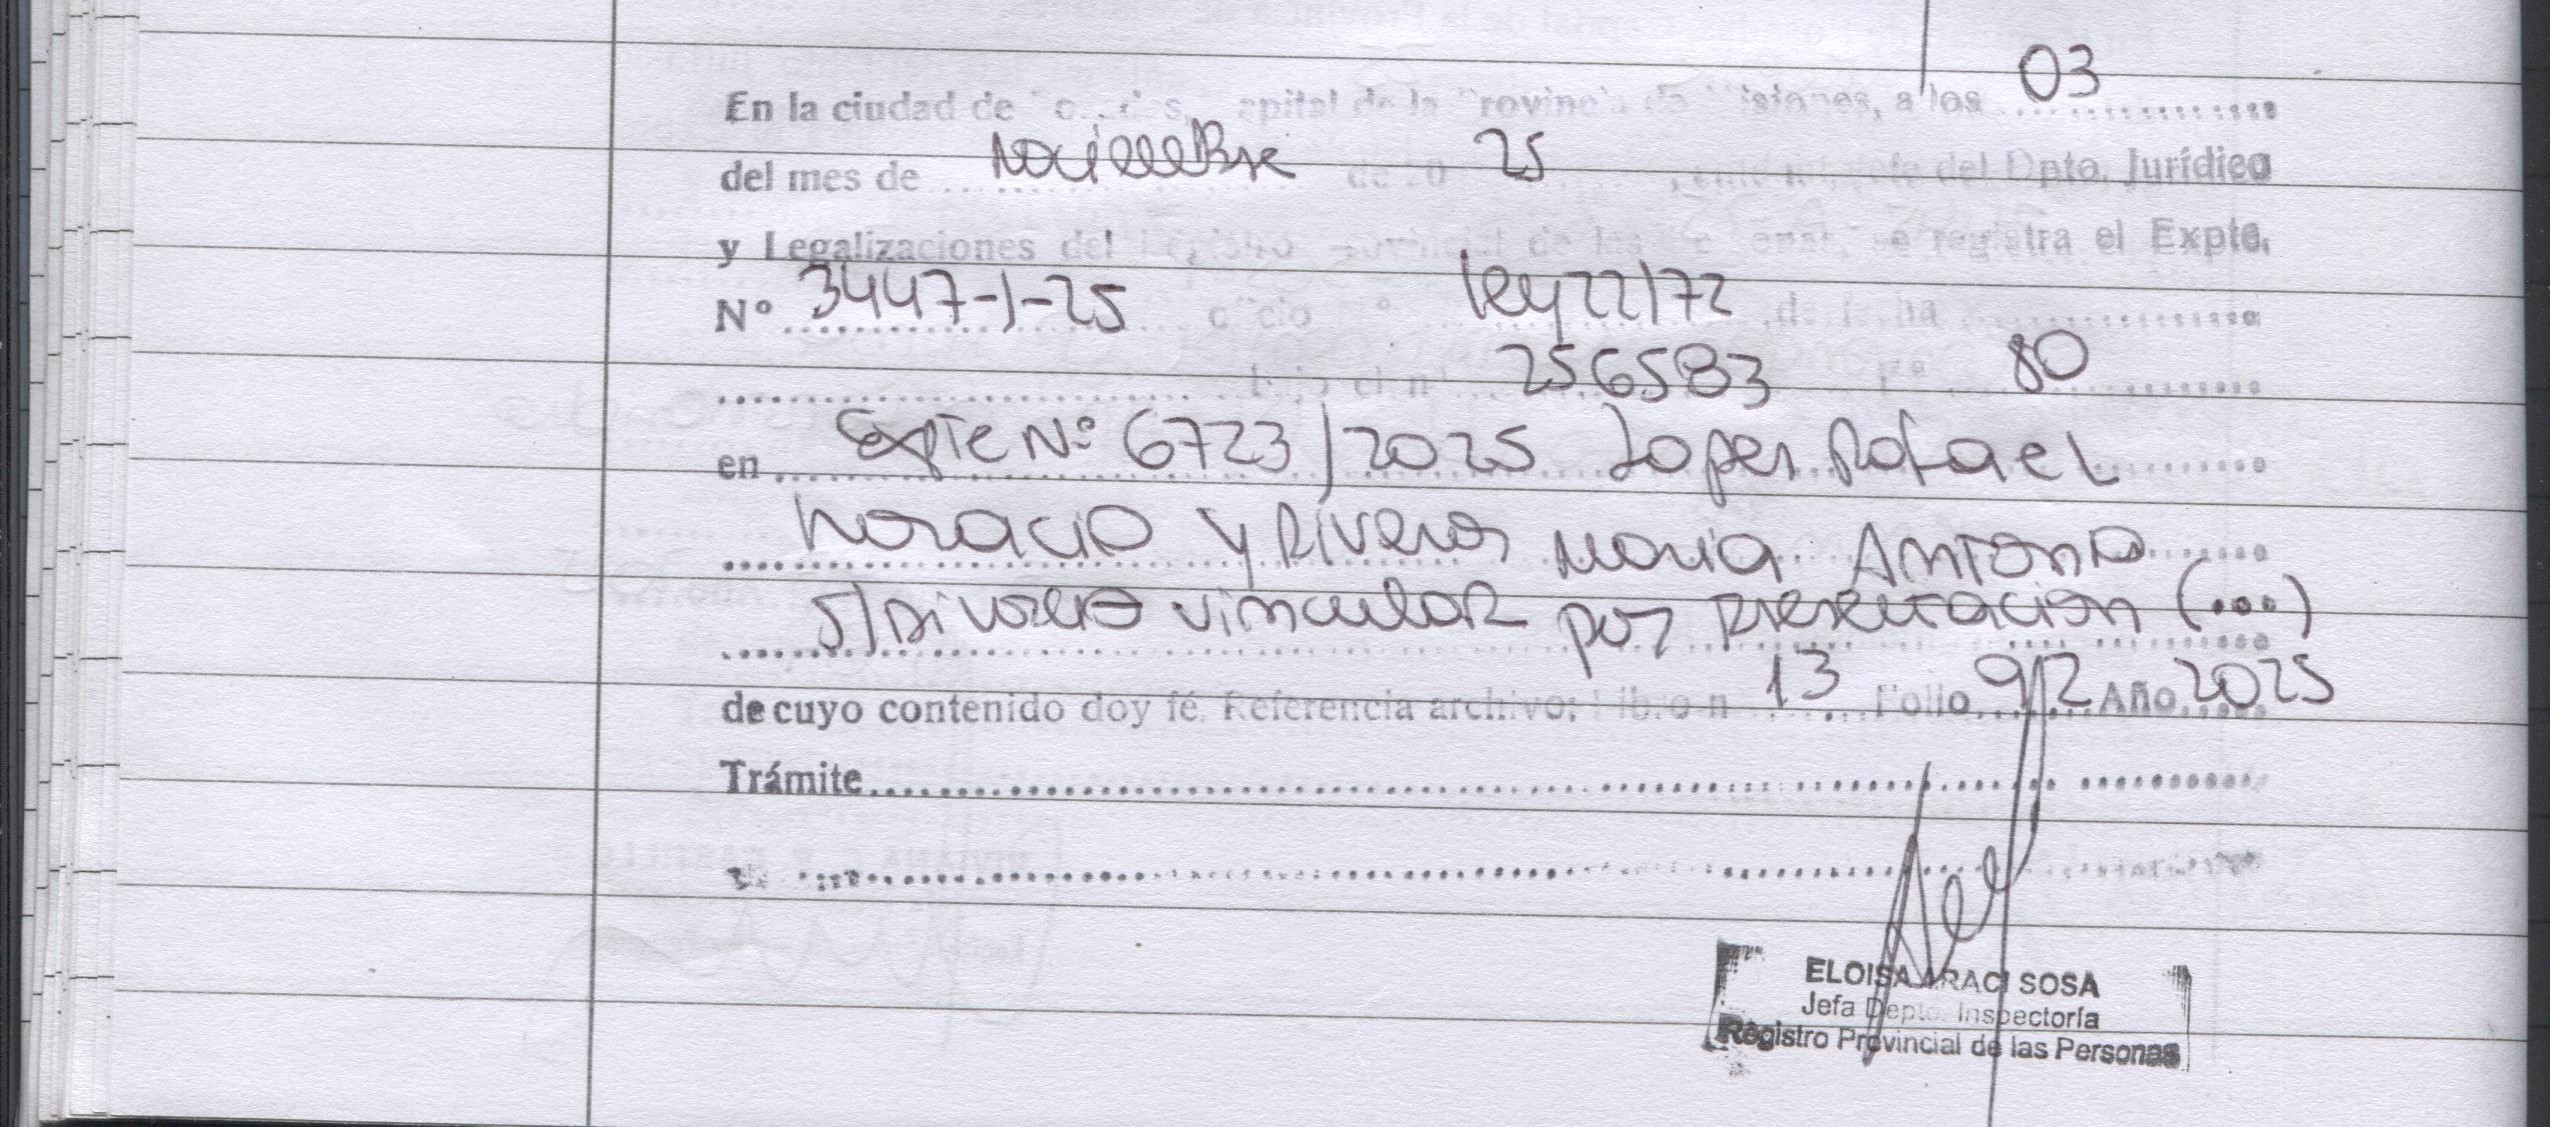 En la ciudad de Posadas, Capital de la Provincia de Misiones, a los 03
del mes de Noviembre de 20 25, ante mi, Jefe del Dpto. Jurídico
y Legalizaciones del Registro Provincial de las Personas, se registra el Expte.
Nº 3447-J-25 oficio nº ley 22172 de fecha
bajo el nº 256583 80
en Expte Nº 6723/2025 Lopez Rafael
Horacio y Riveros Maria Antonia
s/Divorcio vincular por presentacion (...)
de cuyo contenido doy fé. Referencia archivo: Libro n 13 Folio 912 Año 2025
Trámite
ELOISA ARACI SOSA
Jefa Depto. Inspectoría
Registro Provincial de las Personas